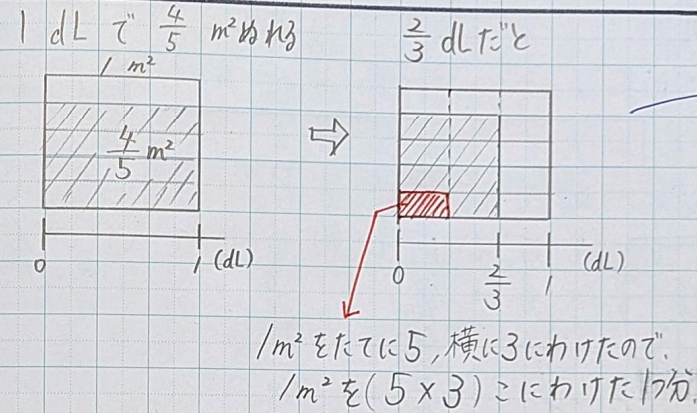 1dLで 4/5 m²ぬれる
1 m²
4/5 m²
0 1 (dL)
2/3 dLだと
0 2/3 1 (dL)
1m²をたてに5,横に3にわけたので.
1m²を(5×3)こにわけた1つ分.